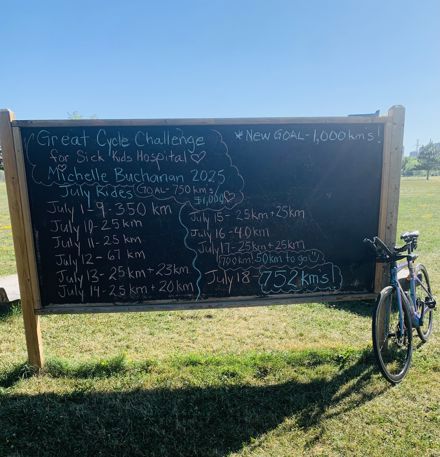 Great Cycle Challenge
for Sick Kids Hospital ♡
Michelle Buchanan 2025
July Rides GOAL-750 kms
$1,000 ♡
July 1-9-350 km
July 10-25 km
July 11-25 km
July 12-67 km
July 13-25 km+23km
July 14-25 km+20km
*NEW GOAL-1,000 kms!
July 15-25km+25km
July 16-40km
July 17-25km+25km
700 km! 50km to go ☺
July 18 752 kms!